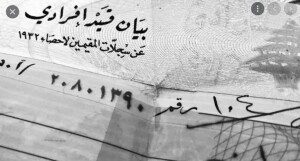 بيان قيد إفرادي
عن سجلات المقيمين لاحصاء ١٩٣٢
رقم ٢٠٨٠١٣٩٠